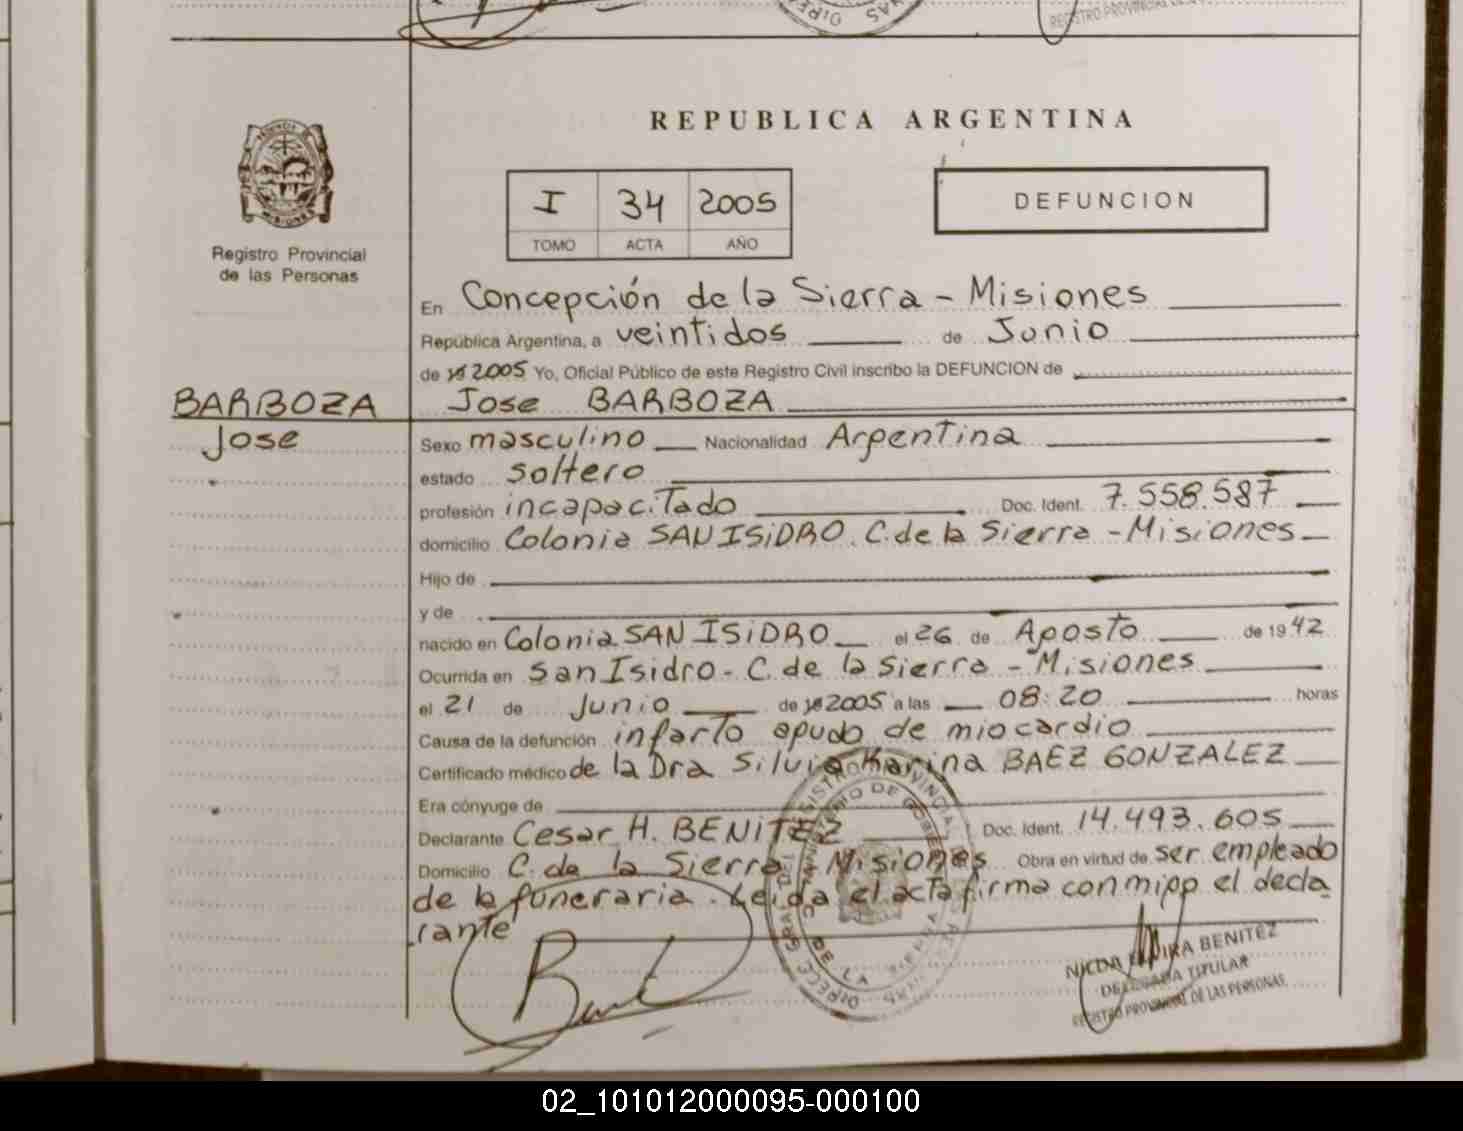 REPUBLICA ARGENTINA
I 34 2005
TOMO ACTA AÑO
DEFUNCION
Registro Provincial
de las Personas
En Concepción de la Sierra - Misiones
República Argentina, a veintidos de Junio
de 2005 Yo, Oficial Público de este Registro Civil inscribo la DEFUNCION de
BARBOZA
Jose
Jose BARBOZA
Sexo masculino Nacionalidad Argentina
estado soltero
profesión incapacitado Doc. Ident. 7.558.587
domicilio Colonia SAN ISIDRO. C. de la Sierra - Misiones
Hijo de
y de
nacido en Colonia SAN ISIDRO el 26 de Agosto de 1942
Ocurrida en San Isidro - C. de la Sierra - Misiones
el 21 de Junio de 2005 a las 08:20 horas
Causa de la defunción infarto agudo de miocardio
Certificado médico de la Dra Silvia Karina BAEZ GONZALEZ
Era cónyuge de
Declarante Cesar H. BENITEZ Doc. Ident. 14.493.605
Domicilio C. de la Sierra Misiones Obra en virtud de ser empleado
de la funeraria. Leida el acta firma conmigo el decla
rante
BENITEZ
TITULAR
REGISTRO PROVINCIAL DE LAS PERSONAS
02_101012000095-000100